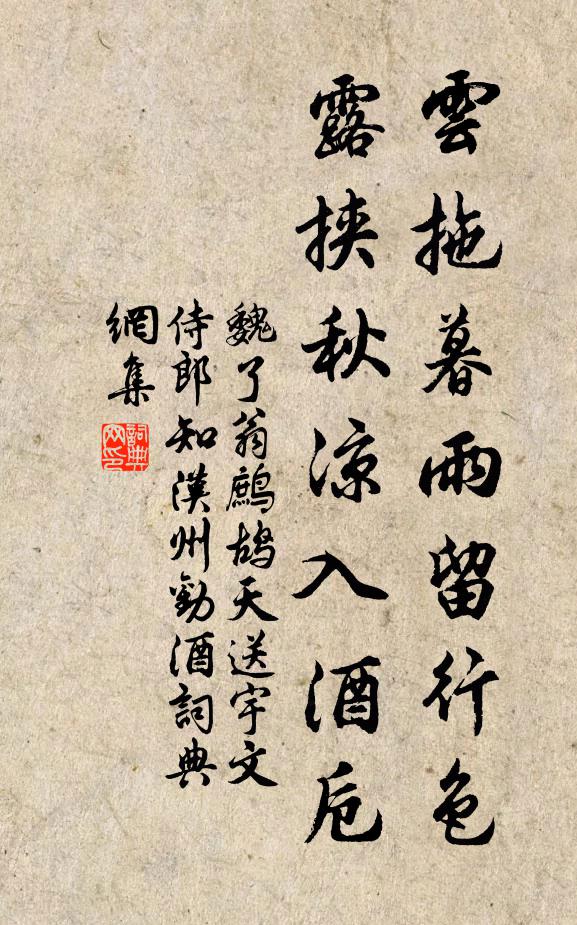 雲拖暮雨留行色
露挾秋凉入酒卮
魏了翁鷓鴣天送宇文
侍郎知漢州勸酒詞典
網集
詞典網印